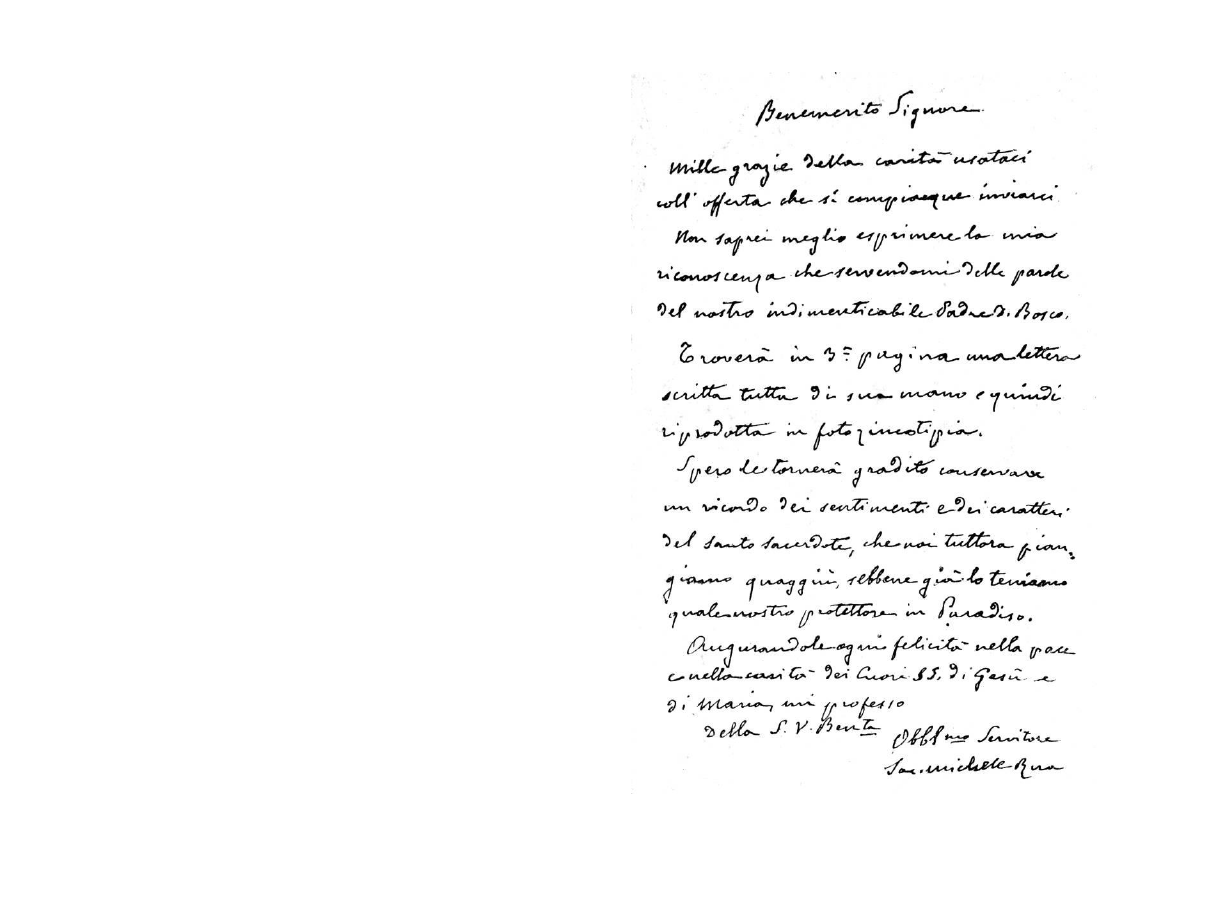 Benemerito Signore
Mille grazie della carità usataci
coll' offerta che si compiacque inviarci
Non saprei meglio esprimere la mia
riconoscenza che servendomi delle parole
del nostro indimenticabile Padre D. Bosco.
Troverà in 3ª pagina una lettera
scritta tutta di sua mano e quindi
riprodotta in fotozincotipia.
Spero le tornerà gradito conservare
un ricordo dei sentimenti e dei caratteri
del santo sacerdote, che noi tuttora pian-
giamo quaggiù, sebbene già lo teniamo
quale nostro protettore in Paradiso.
Augurandole ogni felicità nella pace
e nella carità dei Cuori SS. di Gesù e
di Maria, mi professo
Della S. V. Benta
Obblmo Servitore
Sac. Michele Rua